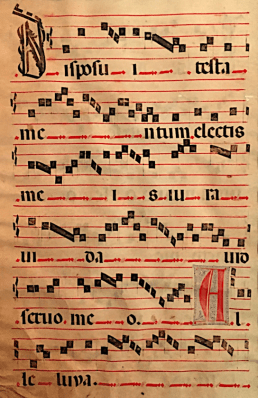 Disposu i testa
me ntum electis
me i s iu ra
ui da uid
seruo me o. A l
le luya.